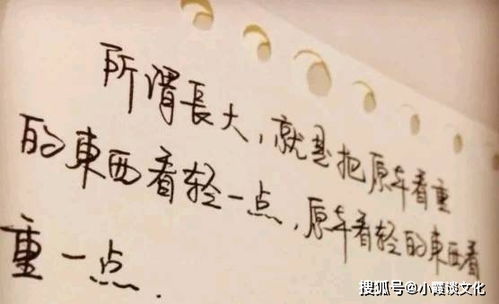 所谓長大，就是把原本看重
的東西看轻一点，原本看轻的東西看
重一点.
搜狐号@小霞谈文化